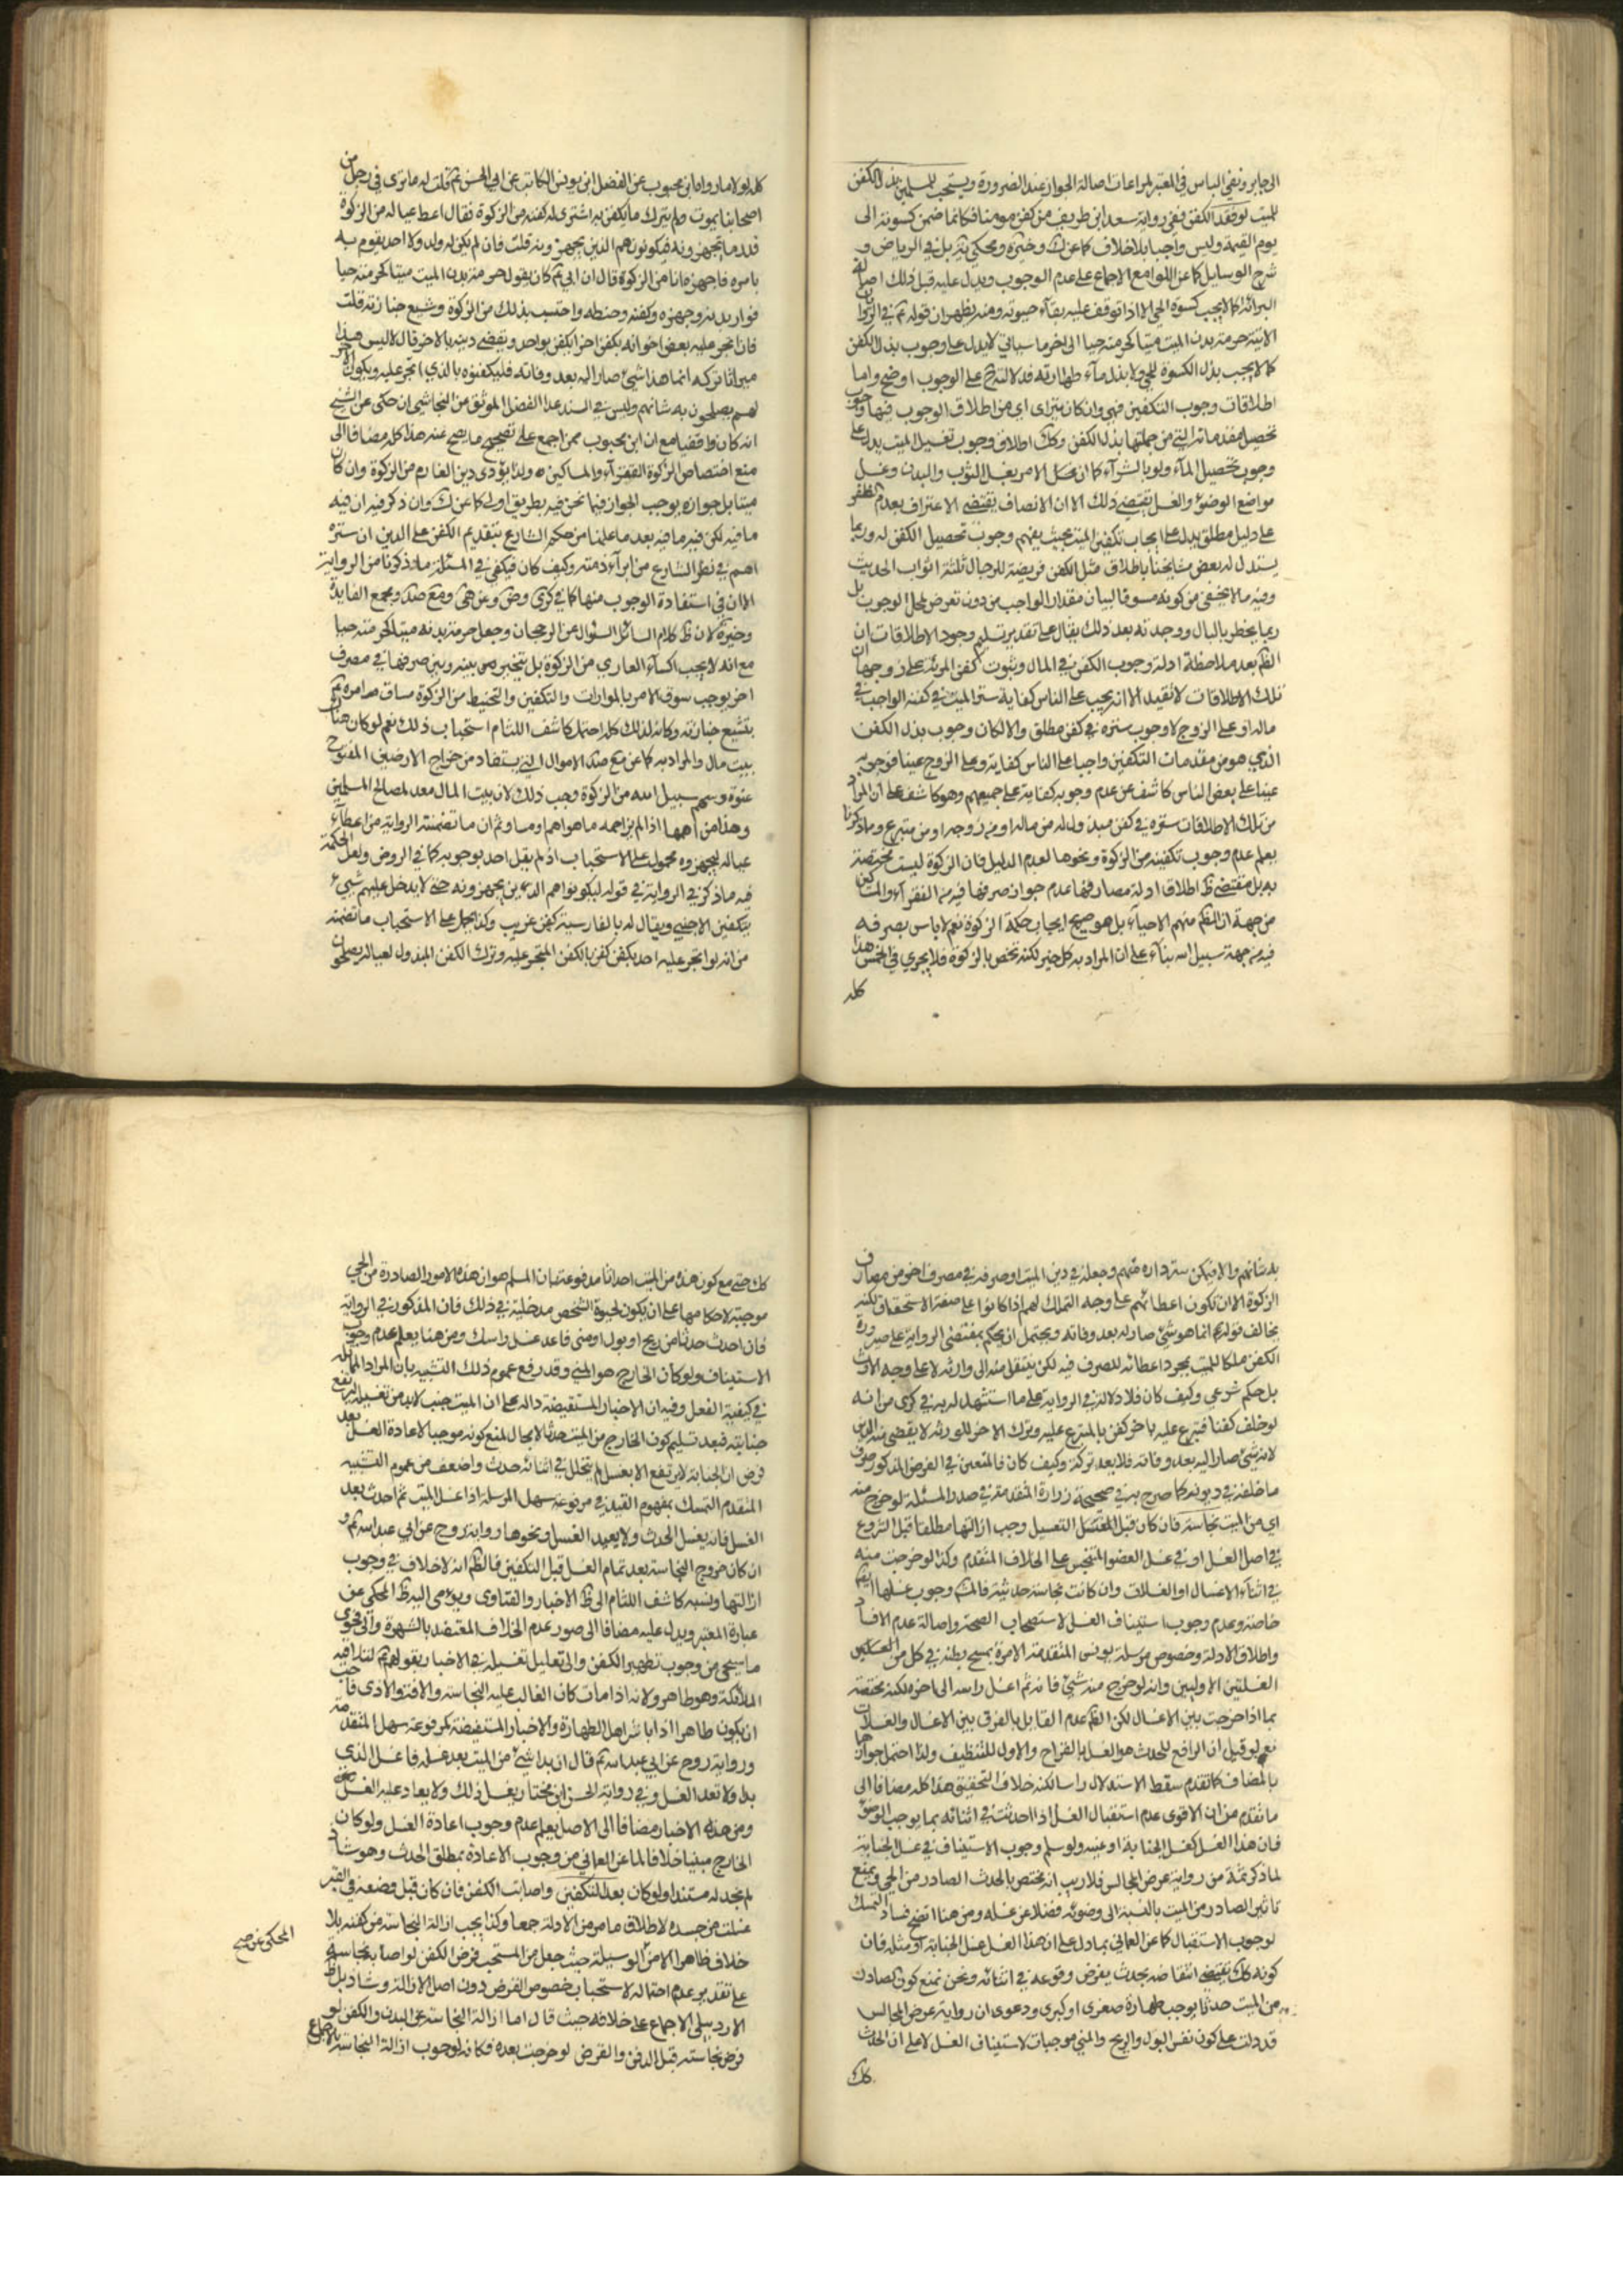 الى جابر ونفى الباس في المعتبر لمراعات اصالة الجواز عند الضرورة ويستحب للمسلمين بذل الكفن
للميت لو فقد الكفن ففي رواية سعد ابن طريف من كفن مومنا فكانما ضمن كسوته الى
يوم القيمة وليس واجبا بلا خلاف كما عن ك وخيرة ومحكي ية بل في الرياض و
شرح الوسايل كما عن اللوامع الاجماع على عدم الوجوب ويدل عليه قبل ذلك اصالة
البرائة كما لا يجب كسوة الحي الا اذا توقف عليه بقاء حيوته ومنه يظهر ان قوله ع في الرواية
الاتية حرمة بدن الميت ميتا كحرمته حيا الى اخر ما سياتي لا يدل على وجوب بذل الكفن
كما لا يجب بذل الكسوة للحي ولا بذل ماء طهارته فدلالته ح على الوجوب اوضح واما
اطلاقات وجوب التكفين فهي وان كان يترائ اي من اطلاق الوجوب فيها وجوب
تحصيل مقدماته التي من جملتها بذل الكفن وكك اطلاق وجوب تغسيل الميت يدل على
وجوب تحصيل الماء ولو بالشراء كما ان محل الامر بغسل الثوب والبدن وغسل
مواضع الوضوء والغسل يقتضي ذلك الا ان الانصاف يقتضي الاعتراف بعدم الظفر
على دليل مطلق يدل على ايجاب تكفين الميت بحيث يفهم وجوب تحصيل الكفن له وربما
يستدل له بعض مشايخنا باطلاق مثل الكفن فريضة للرجال ثلثة اثواب الحديث
وفيه ما لا يخفى من كونه مسوقا لبيان مقدار الواجب من دون تعرض لمحل الوجوب بل
ربما يخطر بالبال ووجدته بعد ذلك يقال على تقدير تسليم وجود الاطلاقات ان
الظم بعد ملاحظة ادلة وجوب الكفن في المال وثبوت كفن المرئة على زوجها ان
تلك الاطلاقات لا تفيد الا انه يجب على الناس كفاية ستر الميت في كفنه الواجب في
ماله او على الزوج لا وجوب ستره في كفن مطلق والا لكان وجوب بذل الكفن
الذي هو من مقدمات التكفين واجبا على الناس كفاية وعلى الزوج عينا فوجوبه
عينا على بعض الناس كاشف عن عدم وجوبه كفاية على جميعهم وهو كاشف على ان المراد
من تلك الاطلاقات ستره في كفن مبذول له من ماله او من زوجه او من متبرع ومما ذكرنا
يعلم عدم وجوب تكفينه من الزكوة ونحوها لعدم الدليل فان الزكوة ليست مختصة
به بل مقتضى ظ اطلاق ادلة مصارفها عدم جواز صرفها فيه من الفقراء والمساكين
من جهة ان الظم منهم الاحياء بل هو صريح ايجاب حكمة الزكوة نعم لا باس بصرفه
فيه من جهة سبيل الله بناء على ان المراد به كل خير لكنه تختص بالزكوة فلا يجري في الخمس هذا
كله
كله لولا ما رواه ابن محبوب عن الفضل ابن يونس الكاتب عن ابي الحسن ع قلت له ما ترى في رجل من
اصحابنا يموت ولم يترك ما يكفن به اشترى له كفنه من الزكوة فقال اعط عياله من الزكوة
قدر ما يجهزونه فيكونون هم الذين يجهزونه قلت فان لم يكن له ولد ولا احد يقوم به
بامره فاجهزه انا من الزكوة قال ان ابي ع كان يقول حرمة بدن الميت ميتا كحرمته حيا
فوار بدنه وجهزه وكفنه وحنطه واحتسب بذلك من الزكوة وشيع جنازته قلت
فان اتجر عليه بعض اخوانه بكفن اخر ايكفن بواحد ويقضى دينه بالاخر قال لا ليس هذا
ميراثا تركه انما هذا شئ صار اليه بعد وفاته فليكفنوه بالذي اتجر عليه ويكون الاخر
لهم يصلحون به شانهم وليس في السند عدا الفضل الموثق من النجاشي ان حكى عن الشيخ
انه كان واقفيا مع ان ابن محبوب ممن اجمع على تصحيح ما يصح عنه هذا كله مضافا الى
منع اختصاص الزكوة الفقراء والمساكين ولذا يؤدى دين الغارم من الزكوة وان كان
ميتا بل جوازه يوجب الجواز فيما نحن فيه بطريق اولى كما عن ك وان ذكر فيه ان فيه
ما فيه لكن فيه ما فيه بعد ما علمنا من حكم الشارع بتقديم الكفن على الدين ان ستره
اهم في نظر الشارع من ابراء ذمته وكيف كان فيكفي في المسئلة ما ذكرنا من الرواية
الا ان في استفادة الوجوب منها كما في كرى وض وعن هى ومع صد ومجمع الفايدة
وخيرة لان ظ كلام السائل السئوال عن الرجحان وجعل حرمة بدنه ميتا كحرمته حيا
مع انه لا يجب اكساء العاري من الزكوة بل يتخير بين بينه وبين صرفها في مصرف
اخر يوجب سوق الامر بالموارات والتكفين والتحنيط من الزكوة مساق امره ع
بتشيع جنازته وكانه لذلك كله احتمل كاشف اللثام استحباب ذلك نعم لو كان هناك
بيت مال والمراد به كما عن مع صد الاموال التي يستفاد من خراج الارضين المفتوح
عنوة وسهم سبيل الله من الزكوة وجب ذلك لان بيت المال معد لمصالح المسلمين
وهذا من اهمها اذا لم يزاحمه ما هو اهم او مساو ثم ان ما تضمنته الرواية من اعطاء
عياله ليجهزوه محمول على الاستحباب اذ لم يقل احد بوجوبه كما في الروض ولعل الحكمة
فيه ما ذكر في الرواية في قوله ليكونوا هم الذين يجهزونه حتى لا يدخل عليهم شئ
بتكفين الاجنبي ويقال له بالفارسية كفن غريب وكذا يحمل على الاستحباب ما تضمنه
من انه لو اتجر عليه احد بكفن كفن بالكفن المتجر عليه وترك الكفن المبذول لعياله يصلحون
به شانهم والا فيمكن ستر داره منهم وجعله في دين الميت او صرفه في مصرف اخر من مصارف
الزكوة الا ان تكون اعطائهم على وجه التملك لهم اذا كانوا على صفة الاستحقاق لكنه
يخالف قوله ع انما هو شئ صار له بعد وفاته ويحتمل ان يحكم بمقتضى الرواية على صيرورة
الكفن ملكا للميت بمجرد اعطائه للصرف فيه لكن ينتقل منه الى وارثه لا على وجه الارث
بل حكم شرعي وكيف كان فلا دلالة في الرواية على ما استشهد له به في كرى من انه
لو خلف كفنا فتبرع عليه باخر كفن بالمتبرع عليه وترك الاخر للورثة لا يقضى منه الدين
لانه شئ صار اليه بعد وفاته فلا يعد تركة وكيف كان فالمتعين في الفرض المذكور صرف
ما خلفه في ديونه كما صرح به في صحيحة زرارة المتقدمة في صدر المسئلة لو خرج منه
اي من الميت نجاسة فان كان قبل التغسيل وجب ازالتها مطلقا قبل الشروع
في اصل الغسل او في غسل العضو المتنجس على الخلاف المتقدم وكذا لو خرجت منه
في اثناء الاغسال او الغسلات وان كانت نجاسة حدثية فالمش وجوب غسلها ايضا
خاصة وعدم وجوب استيناف الغسل لاستصحاب الصحة واصالة عدم الافساد
واطلاق الادلة وخصوص مرسلة يونس المتقدمة الامرة بمسح بطنه في كل من الغسلين
الغسلتين الاوليين وانه لو خرج منه شئ فانه ثم اغسل راسه الى اخره لكنه مختصة
بما اذا خرجت بين الاغسال لكن الظم عدم القايل بالفرق بين الاغسال والغسلات
نعم لو قيل ان الرافع للحدث هو الغسل بالقراح والاول للتنظيف ولذا احتمل جوازها
بالمضاف كما تقدم سقط الاستدلال راسا لكنه خلاف التحقيق هذا كله مضافا الى
ما تقدم من ان الاقوى عدم استقبال الغسل اذا احدثت في اثنائه بما يوجب الوضوء
فان هذا الغسل كغسل الجنابة او عينه ولو سلم وجوب الاستيناف في غسل الجنابة
لما ذكر ثمة من رواية عرض المجالس فلا ريب انه مختص بالحدث الصادر من الحي ويمنع
تاثير الصادر من الميت بالنسبة الى وضوئه فضلا عن غسله ومن هنا اتضح فساد التمسك
لوجوب الاستقبال كما عن العماني بما دل على ان هذا الغسل غسل الجنابة او مثله فان
كونه كك يقتضي انتقاضه بحدث يفرض وقوعه في اثنائه ونحن نمنع كون الصادر
من الميت حدثا يوجب طهارة صغرى او كبرى ودعوى ان رواية عرض المجالس
قد دلت على كون نفس البول والريح والمني موجبات لاستيناف الغسل لا على ان الحدث
كك
كك حتى مع كون هذه من الميت احداثا مدفوعة بان المسلم هو ان هذه الامور الصادرة من الحي
موجبة لاحكامها على ان يكون لحيوة الشخص مدخلية في ذلك فان المذكور في الرواية
فان احدث حدثا من ريح او بول او مني فاعد غسل راسك ومن هنا يعلم عدم وجوب
الاستيناف ولو كان الخارج هو المني وقد رفع عموم ذلك التشبيه بان المراد المماثلة
في كيفية الفعل وفيه ان الاخبار المستفيضة دالة على ان الميت جنب لابد من تغسيله ليرتفع
جنابته فبعد تسليم كون الخارج من الميت حدثا لا مجال لمنع كونه موجبا لاعادة الغسل بعد
فرض ان الجنابة لا يرتفع الا بغسل لم يتخلل في اثنائه حدث واضعف من عموم التشبيه
المتقدم التمسك بمفهوم القيد في مرفوعة سهل المرسلة اذا غسل الميت ثم احدث بعد
الغسل فانه يغسل الحدث ولا يعيد الغسل ونحوها رواية روح عن ابي عبد الله ع و
ان كان خروج النجاسة بعد تمام الغسل قبل التكفين فالظم انه لا خلاف في وجوب
ازالتها ونسبه كاشف اللثام الى ظ الاخبار والفتاوى ويؤمى اليه ظ المحكي عن
عبارة المعتبر ويدل عليه مضافا الى صور عدم الخلاف المعتضد بالشهرة والى فحوى
ما سيجئ من وجوب تطهير الكفن والى تعليل تغسيله في الاخبار بقولهم ع لتلاقيه
الملائكة وهو طاهر ولانه اذا مات كان الغالب عليه النجاسة والافة والاذى فاحب
ان يكون طاهرا اذا باشر اهل الطهارة والاخبار المستفيضة كمرفوعة سهل المتقدمة
ورواية روح عن ابي عبد الله ع قال ان بدا شئ من الميت بعد غسله فاغسل الذي
بدا ولا تعد الغسل وفي رواية الحسن ابن مختار يغسل ذلك ولا يعاد عليه الغسل
ومن هذه الاخبار مضافا الى الاصل يعلم عدم وجوب اعادة الغسل ولو كان
الخارج مبنيا خلافا لما عن العماني من وجوب الاعادة بمطلق الحدث وهو شاذ
لم نجد له مستندا ولو كان بعد التكفين واصابت الكفن فان كان قبل وضعه في القبر
غسلت من جسده لاطلاق ما مر من الادلة جمعا وكذا يجب ازالة النجاسة من كفنه بلا
خلاف ظاهر الا من الوسيلة حيث جعل من المستحب قرض الكفن لو اصابه نجاسة
على تقدير عدم احتماله لاستحباب خصوص القرض دون اصل الازالة وشاذ بل ظ
الاردبيلي الاجماع على خلافه حيث قال اما ازالة النجاسة عن البدن والكفن لو
فرض نجاسته قبل الدفن والقرض لو خرجت بعده فكانه لوجوب ازالة النجاسة بالاجماع
المحكي عن صريح